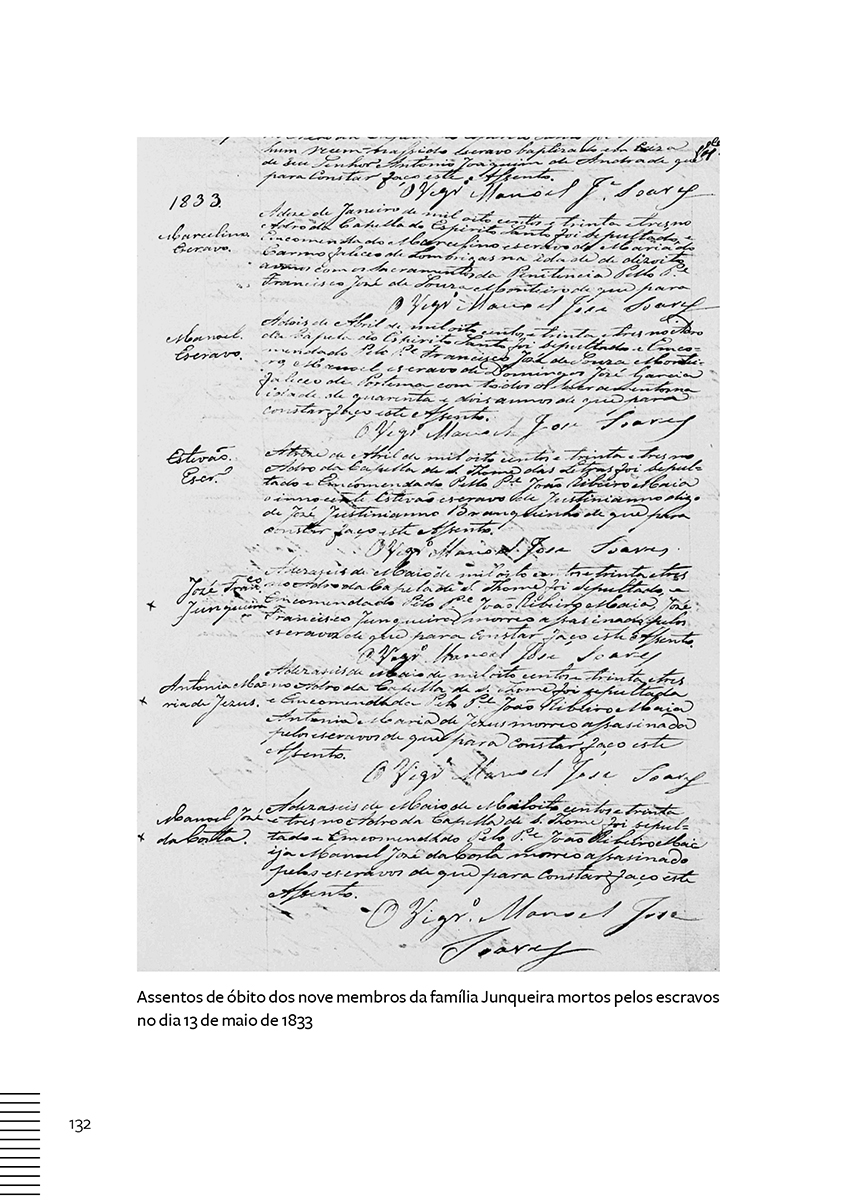 hum recem-nassido escravo baptizado em caza
de seu Senhor Antonio Joaquim de Andrade que
para Constar faço este Assento.
O Vigr.º Manoel J.e Soares
1833.
Marcelino
Escravo.
de Janeiro de mil oito centos e trinta e tres no
Adro da Capella do Espirito Santo foi sepultado, e
Emcomendado Marcelino escravo de Maria do
Carmo na idade de dizoito
annos com os Sacramentos da Penitencia Pello P.e
Francisco José de Souza Monteiro de que para
O Vigr.º Manoel Jose Soares
Manoel.
Escravo.
Adois de Abril de mil oito centos e trinta e tres no Adro
da Capella do Espirito Santo foi sepultado e Emco-
mendado Pelo P.e Francisco José de Souza Montei-
ro, Manoel escravo de Domingos José Garcia
com todos os Sacramentos na
idade de quarenta e dois annos de que para
constar faço este Assento.
O Vigr.º Manoel Jose Soares
Estevão
Escr.º
Atreze de Abril de mil oito centos e trinta e tres no
Adro da Capella de S. Thome das Letras foi sepul-
tado e Emcomendado Pello P.e João Ribeiro Maia
o innocente Estevão escravo de Justinianno digo
de José Justinianno Branquinho de que para
constar faço este Assento.
O Vigr.º Manoel Jose Soares.
José Fran.co
Junqueira
Adezaseis de Maio de mil oito centos e trinta e tres
no Adro da Capela de S. Thome foi sepultado, e
Emcomendado Pelo P.e João Ribeiro Maia, José
Francisco Junqueira morreo assasinado pelos
escravos de que para Constar faço este Assento.
O Vigr.º Manoel Jose Soares
Antonia Ma-
ria de Jezus.
Adezaseis de Maio de mil oito centos e trinta e tres
no Adro da Capella de S. Thome foi sepultada
e Emcomendada Pelo P.e João Ribeiro Maia
Antonia Maria de Jezus morreo assasinada
pelos escravos de que para constar faço este
Assento.
O Vigr.º Manoel Jose Soares
Manoel José
da Costa.
Adezaseis de Maio de Mil oito centos e trinta
e tres no Adro da Capella de S. Thome foi sepul-
tado e Emcomendado Pelo P.e João Ribeiro Mai-
a Manoel José da Costa morreo assasinado
pelos escravos de que para constar faço este
Assento.
O Vigr.º Manoel Jose
Soares
Assentos de óbito dos nove membros da família Junqueira mortos pelos escravos
no dia 13 de maio de 1833
132